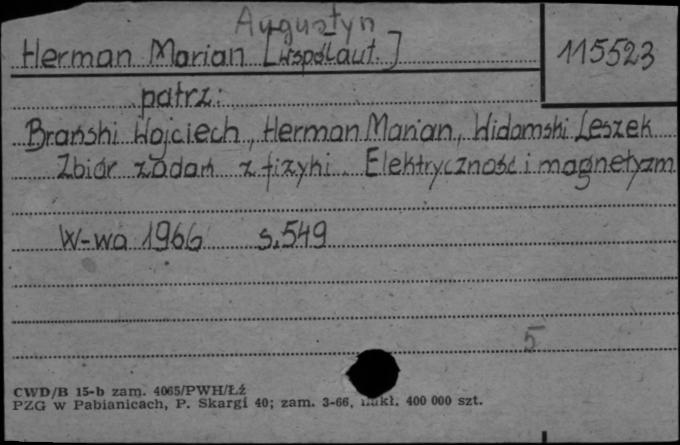 Augustyn
Herman Marian [współaut.]
115523
patrz:
Brański Wojciech, Herman Marian, Widomski Leszek
Zbiór zadań z fizyki. Elektryczność i magnetyzm
W-wa 1966 s. 549
5
CWD/B 15-b zam. 4065/PWH/Łź
PZG w Pabianicach, P. Skargi 40; zam. 3-66, nakł. 400 000 szt.